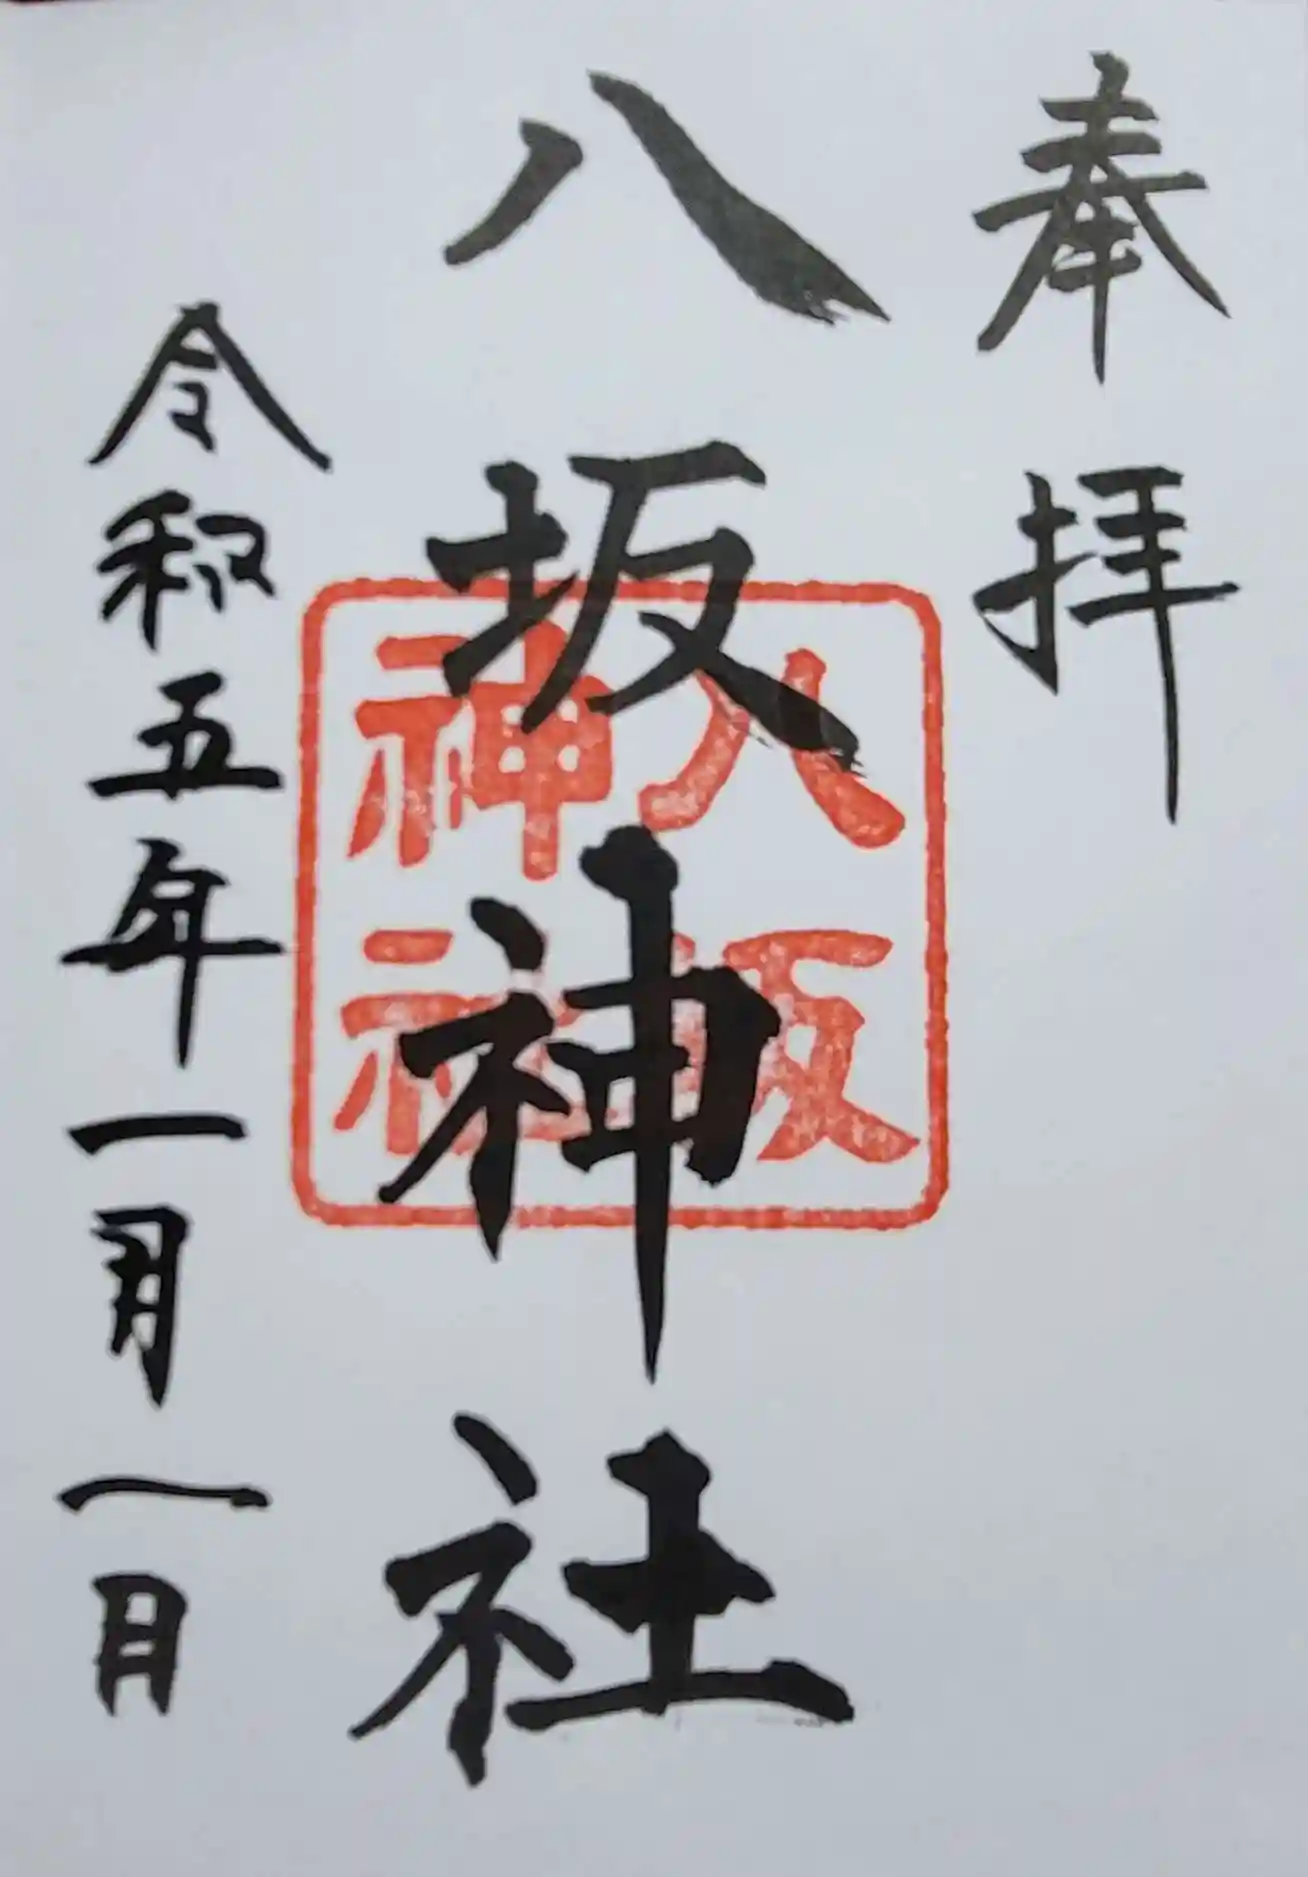 奉拝
八坂神社
八坂
神社
令和五年一月一日